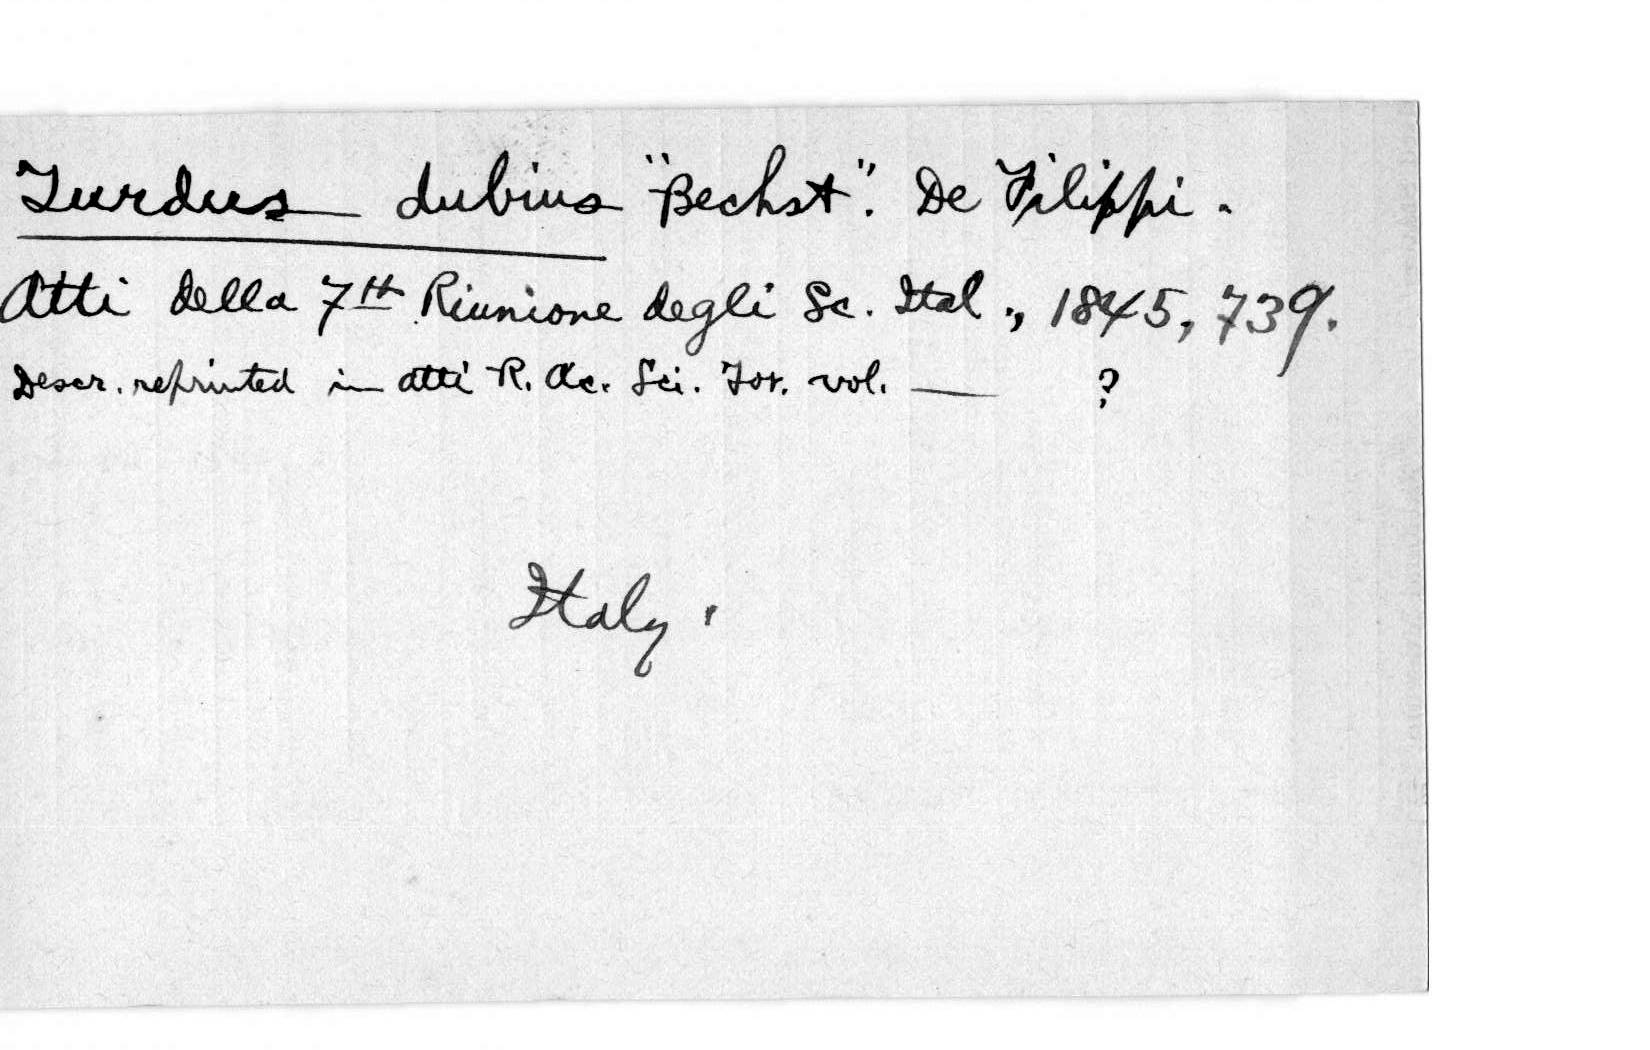 Turdus dubius "Bechst". De Filippi.
Atti della 7th Riunione degli Sc. Ital., 1845, 739.
Descr. reprinted in Atti R. Ac. Sci. Tor. vol. — ?
Italy.